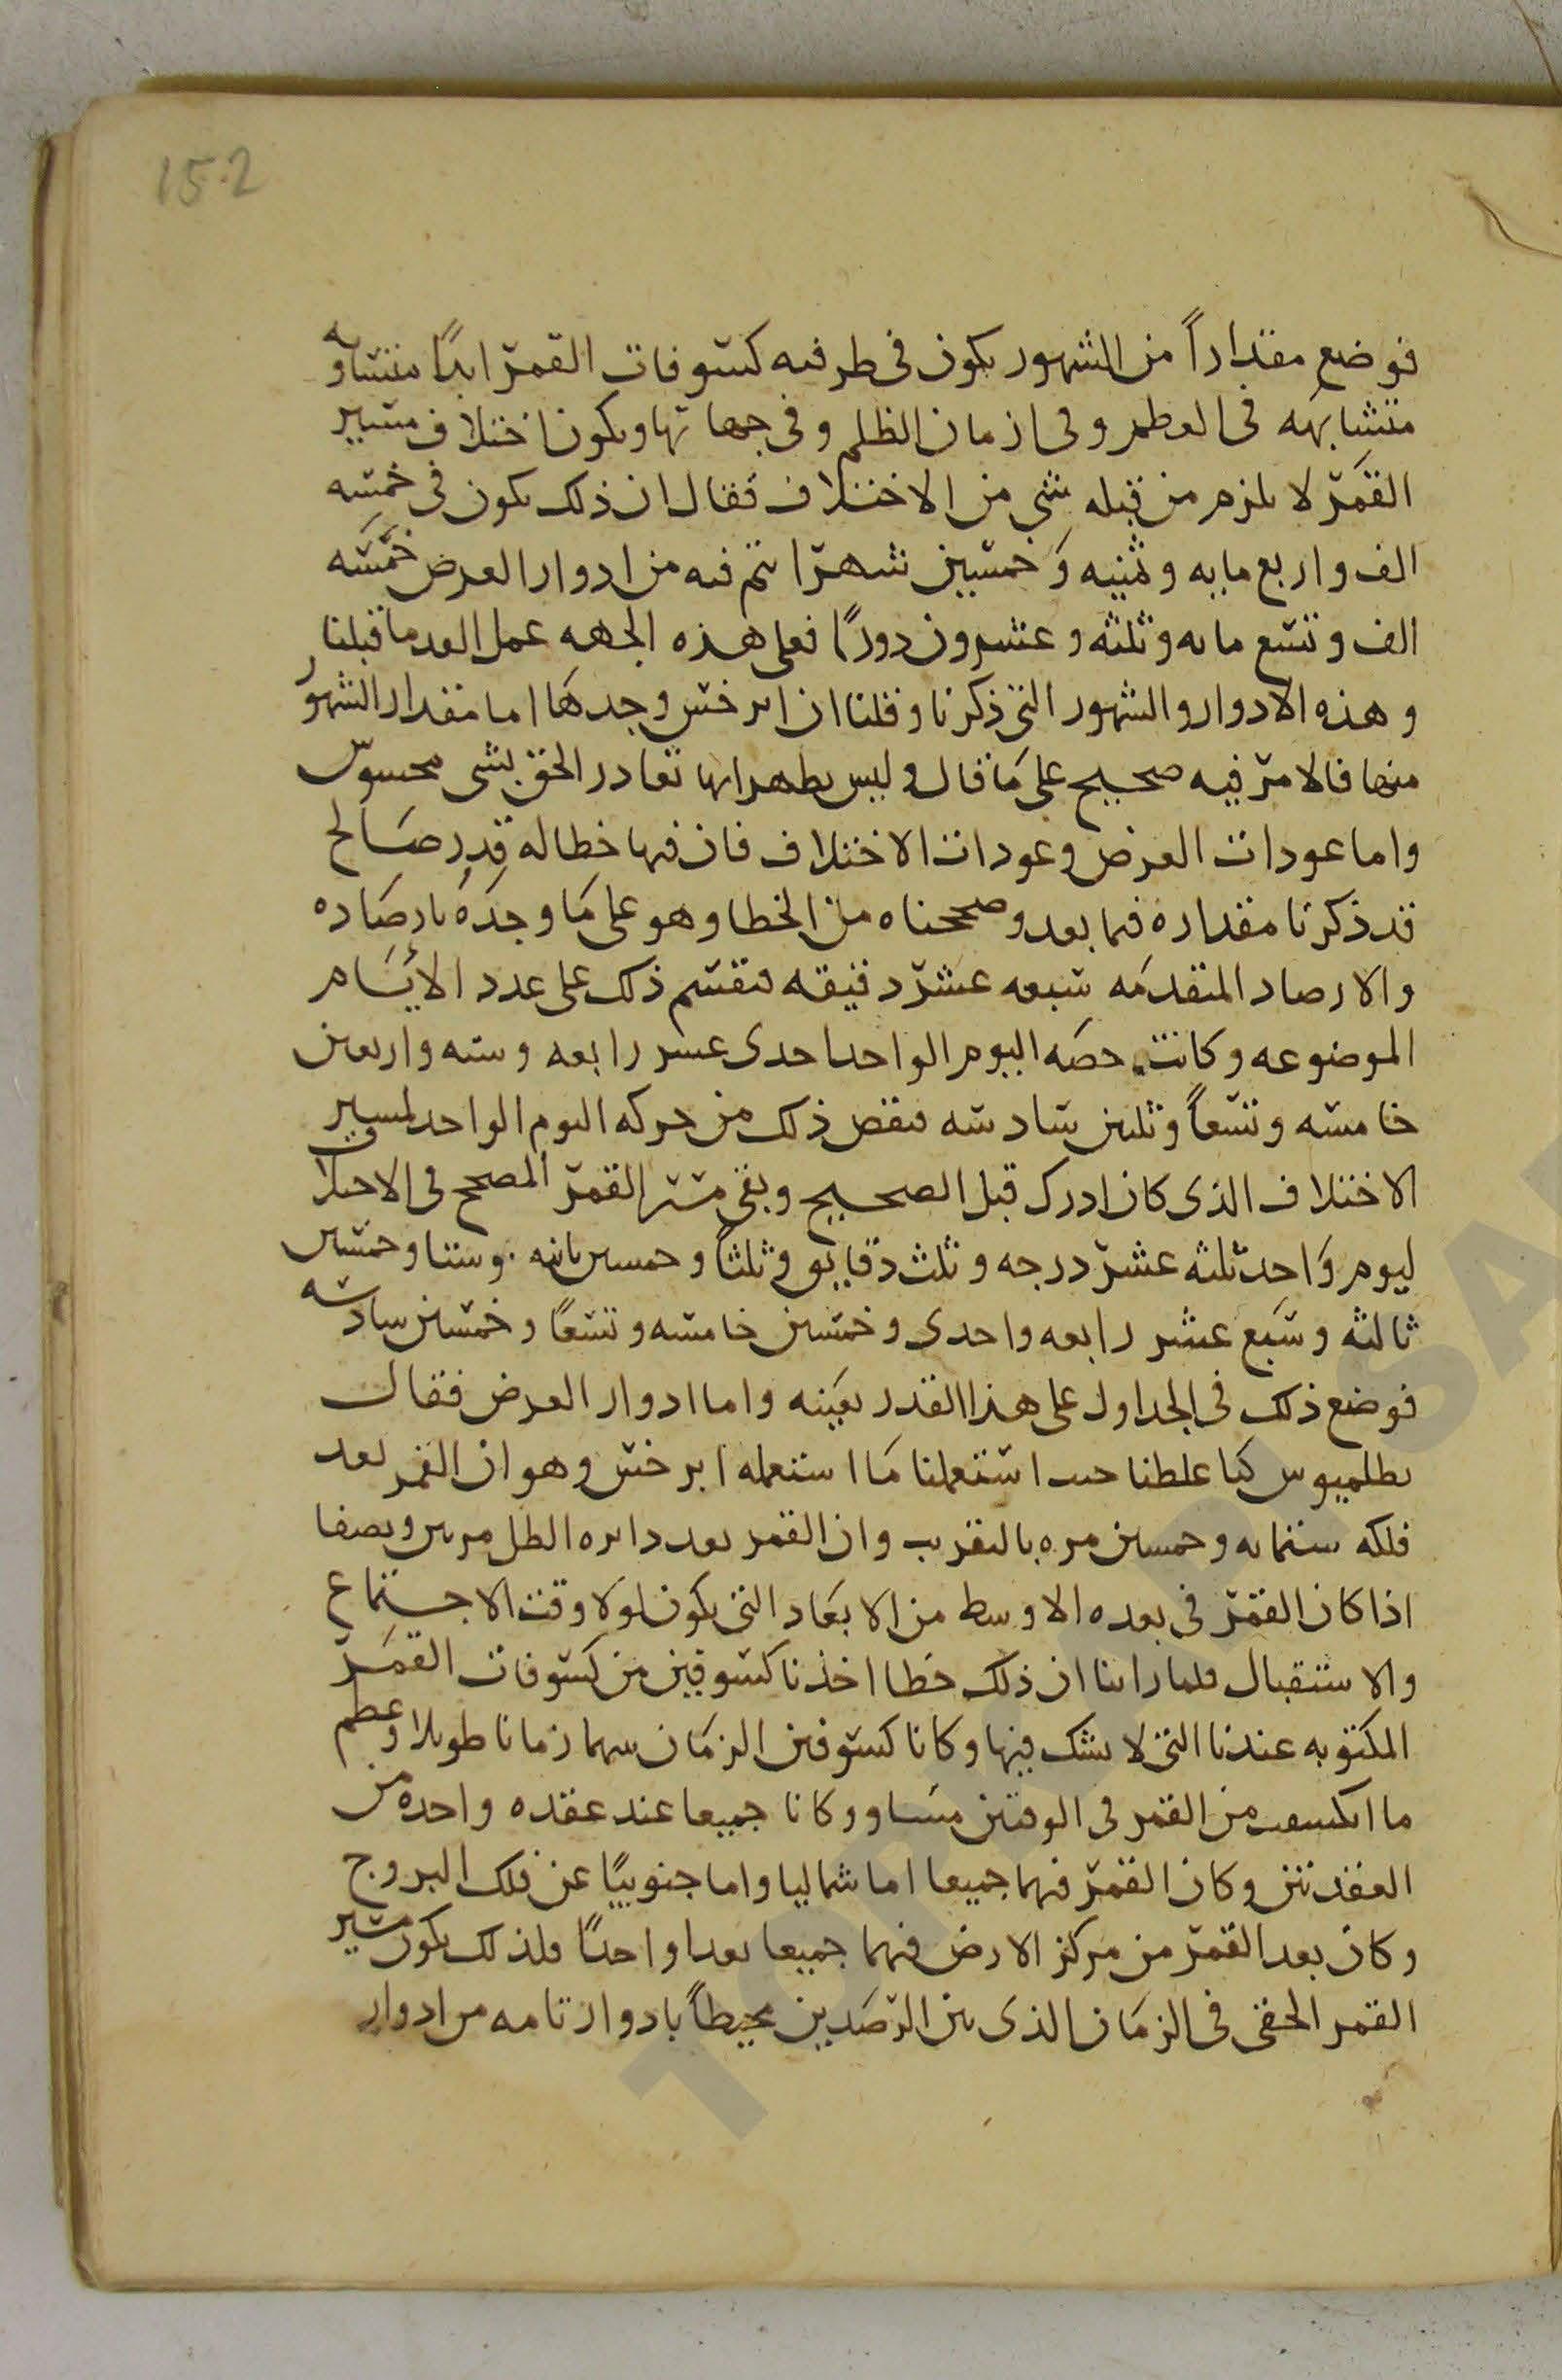 152
فوضع مقداراً من الشهور يكون فى طرفيه كسوفات القمر ابداً متساويه
متشابهه فى العظم وفى ازمان الظلم وفى جهاتها ويكون اختلاف مسير
القمر لا يلزم من قبله شى من الاختلاف فقال ان ذلك يكون فى خمسه
الف واربع مايه وثمنيه وخمسين شهرا تتم فيه من ادوار العرض خمسه
الف وتسع مايه وثلثه وعشرون دورًا فعلى هذه الجهه عمل القدما قبلنا
وهذه الادوار والشهور التى ذكرنا وقلنا ان ابرخس وجدها اما مقدار الشهور
منها فالامر فيه صحيح على ما قال وليس يظهر انها تغادر الحق بشى محسوس
واما عودات العرض وعودات الاختلاف فان فيها خطا له قدر صالح
قد ذكرنا مقداره فيما بعد وصححناه من الخطا وهو على ما وجده بارصاده
والارصاد المتقدمه سبعه عشر دقيقه فتقسم ذلك على عدد الايام
الموضوعه وكانت حصه اليوم الواحد احدى عشر رابعه وسته واربعين
خامسه وتسعاً وثلثين سادسه فنقص ذلك من حركه اليوم الواحد لمسير
الاختلاف الذى كان ادرك قبل الصحيح وبقى مسير القمر المصحح فى الاختلاف
ليوم واحد ثلثه عشر درجه وثلث دقايق وثلثاً وخمسين ثانيه وستا وخمسين
ثالثه وسبع عشر رابعه واحدى وخمسين خامسه وتسعاً وخمسين سادسه
فوضع ذلك فى الجداول على هذا القدر بعينه واما ادوار العرض فقال
بطلميوس كنا غلطنا حيث استعملنا ما استعمله ابرخس وهو ان القمر يعد
فلكه ستمايه وخمسين مره بالتقريب وان القمر يعد دايره الظل مرتين ونصفا
اذا كان القمر فى بعده الاوسط من الابعاد التى يكون اولا وقت الاجتماع
والاستقبال فلما راينا ان ذلك خطا اخذنا كسوفين من كسوفات القمر
المكتوبه عندنا التى لا يشك فيها وكانا كسوفين الزمان بينهما زمانا طويلا وعظم
ما انكسف من القمر فى الوقتين متساو وكانا جميعا عند عقده واحده من
العقدتين وكان القمر فيهما جميعا اما شماليا واما جنوبيًا عن فلك البروج
وكان بعد القمر من مركز الارض فيهما جميعا بعدا واحدًا فلذلك يكون مسير
القمر الحقى فى الزمان الذى بين الرصدين محيطاً بادوار تامه من ادوار
TOPKAPI SA